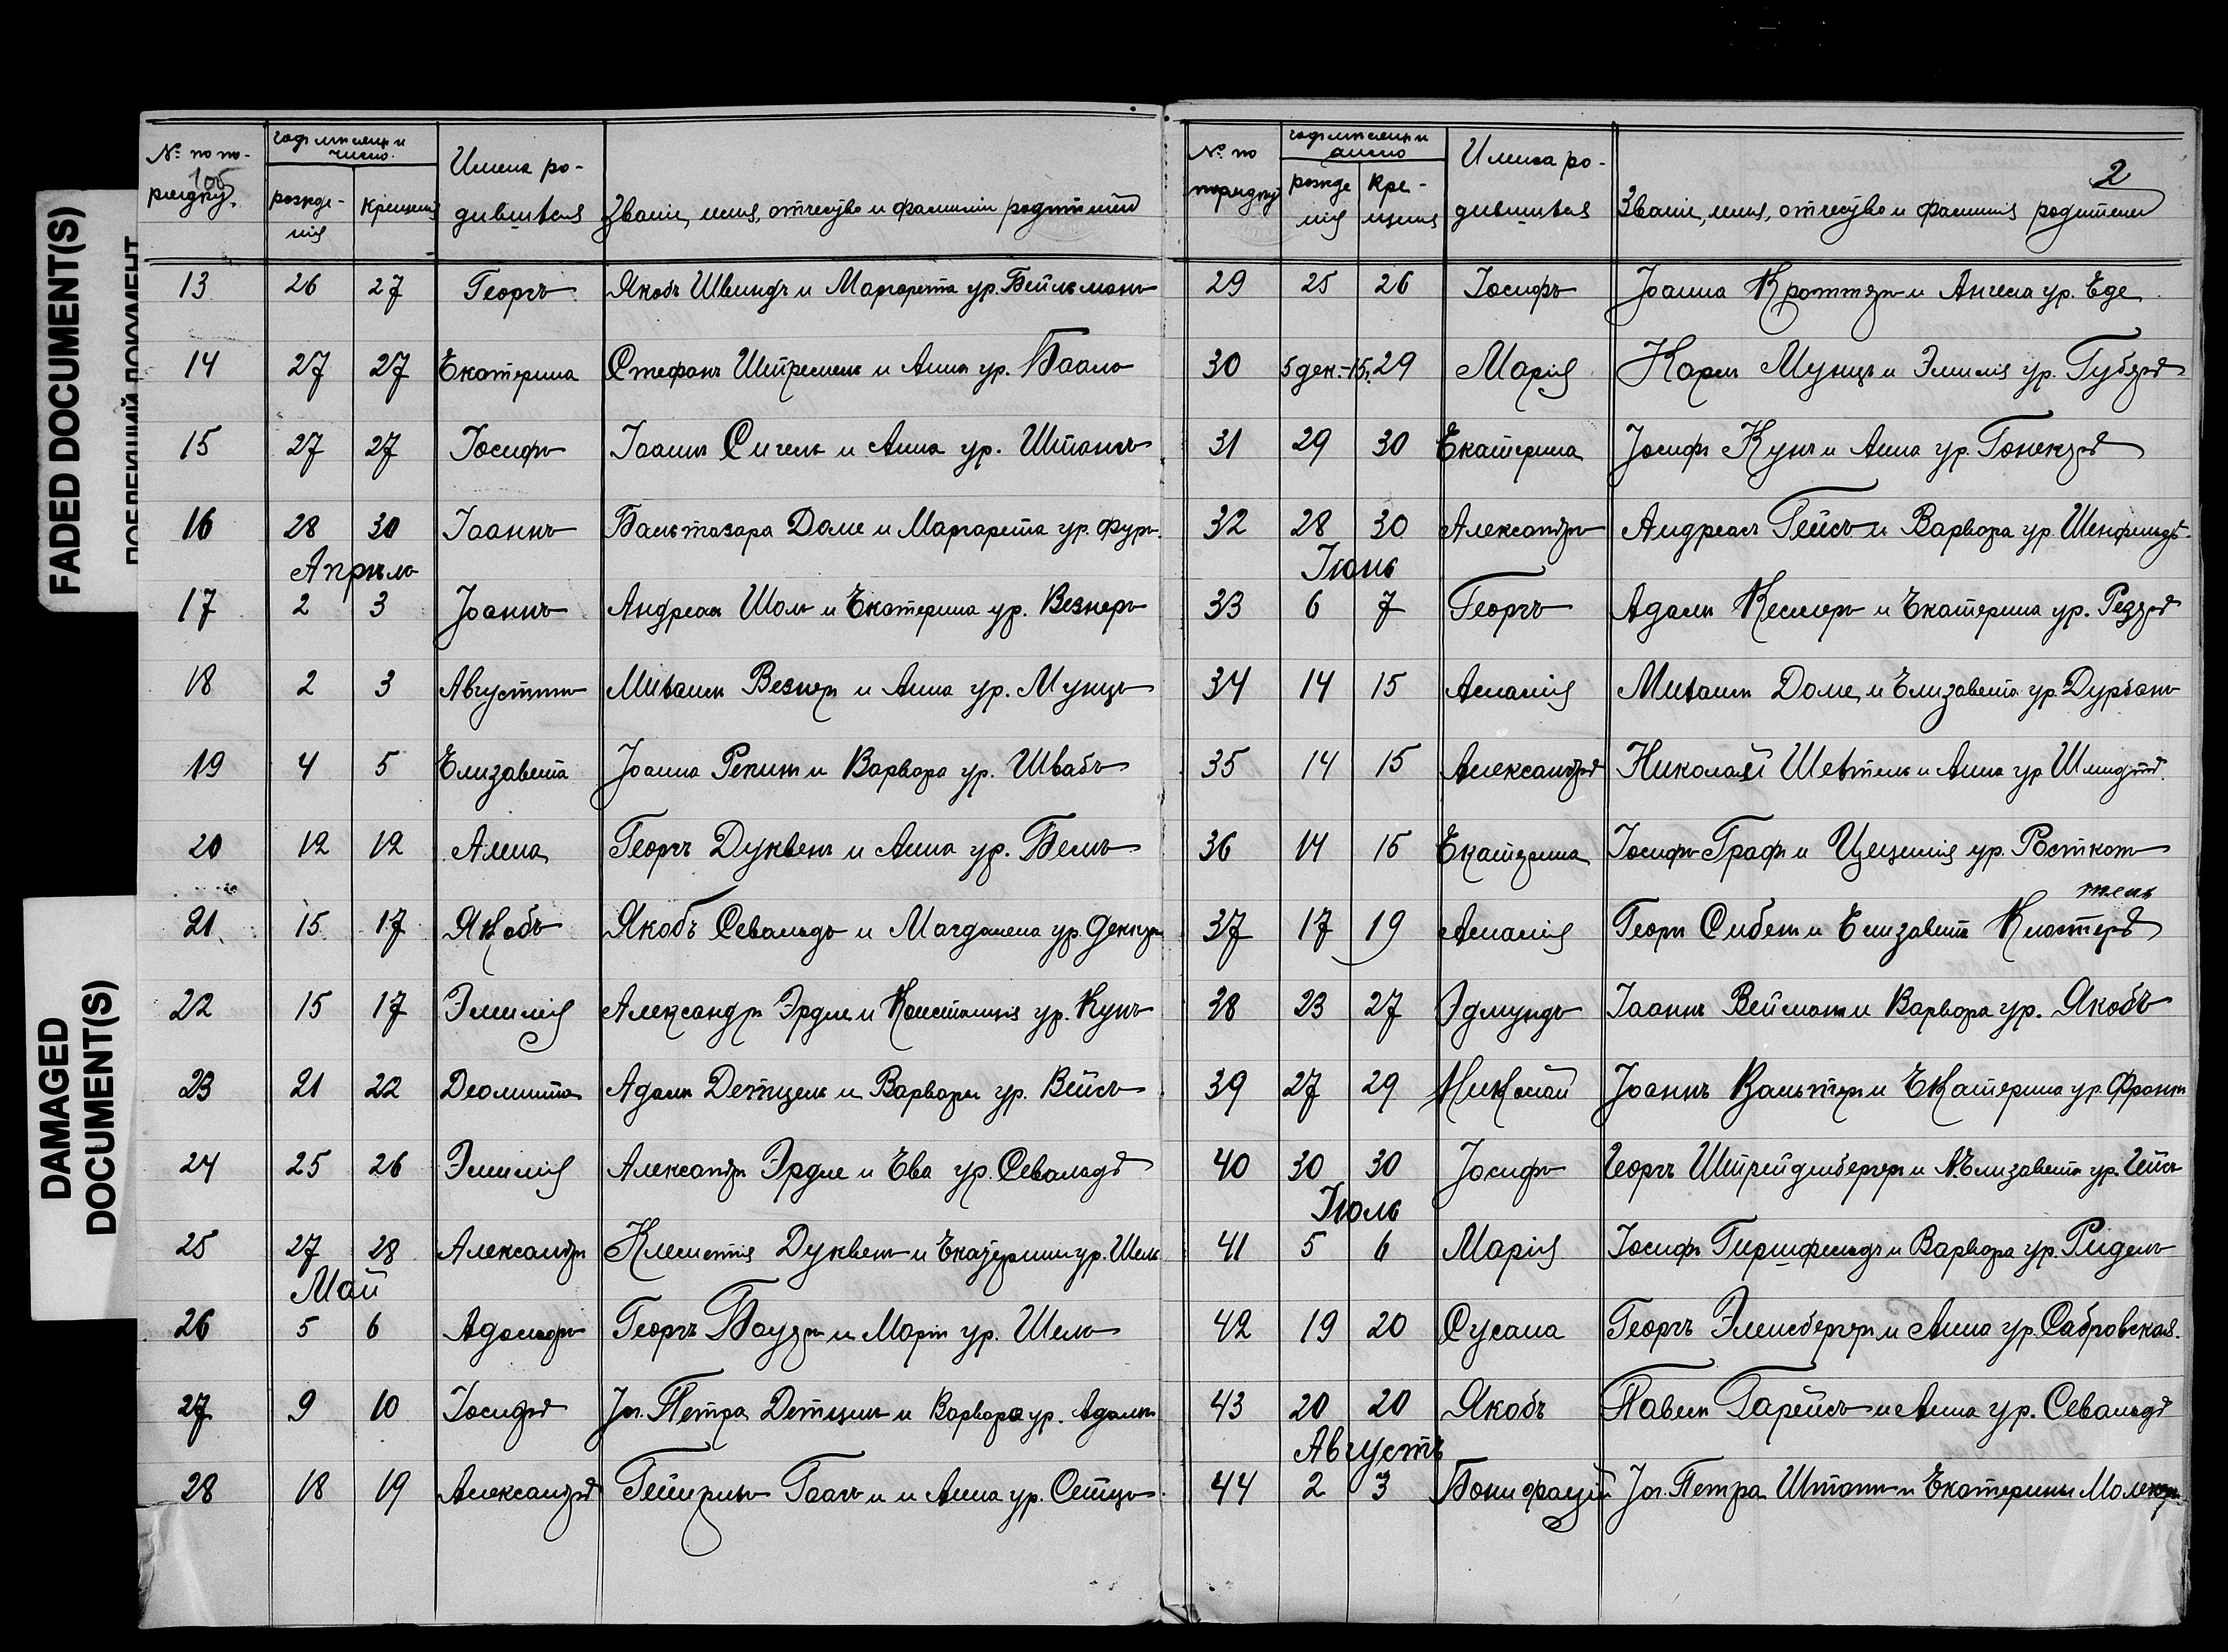 FADED DOCUMENT(S)
DAMAGED
DOCUMENT(S)
№ по по-
рядку.
105
годъ мѣсяцъ и
число.
рожде-
нія
крещенія
Имена ро-
дившихся
Званіе, имя, отчество и фамилія родителей
13 26 27 Георгъ Якобъ Швиндъ и Маргарета ур. Бейльманъ
14 27 27 Екатерина Стефанъ Штремель и Анна ур. Бааль
15 27 27 Іосифъ Іоаннъ Сигель и Анна ур. Штангъ
16 28 30 Іоаннъ Бальтазара Доме и Маргарета ур. Фуръ.
Апрѣль
17 2 3 Іоаннъ Андреасъ Шоль и Екатерина ур. Везнеръ
18 2 3 Августинъ Михаилъ Везнеръ и Анна ур. Мунцъ
19 4 5 Елизавета Іоанна и Варвара ур. Швабъ
20 12 12 Анна Георгъ Дуквенъ и Анна ур. Бемъ
21 15 17 Якобъ Якобъ Севальдъ и Магдалена ур.
22 15 17 Эмилія Александръ Эрдле и Констанція ур. Кунъ
23 21 22 Адамъ Детцель и Варвара ур. Вейсъ
24 25 26 Эмилія Александръ Эрдле и Ева ур. Севальдъ
25 27 28 Александръ Дуквенъ и Екатерина ур. Шель
Май
26 5 6 Адольфъ Георгъ Бауэръ и Марія ур. Шель
27 9 10 Іосифъ Іог. Петра Детцель и Варвара ур. Адамъ
28 18 19 Александръ Гейнрихъ Гаагъ и и Анна ур.
№ по
порядку
годъ мѣсяцъ и
число
рожде
нія
кре-
щенія
Имена ро-
дившихся
2
Званіе, имя, отчество и фамилія родителей
29 25 26 Іосифъ Іоанна Кроттеръ и Ангела ур. Еде
30 5 дек.-15. 29 Марія Карлъ Мунцъ и Эмилія ур. Губеръ
31 29 30 Екатерина Іосифъ Кунъ и Анна ур.
32 28 30 Александръ Андреасъ Гейсъ и Варвара ур. Шенфельдъ.
Іюнь
33 6 7 Георгъ Адамъ Кеслеръ и Екатерина ур.
34 14 15 Амалія Михаилъ Доме и Елизавета ур. Дурбанъ
35 14 15 Александръ Николай Шехтель и Анна ур Шмидтъ.
36 14 15 Екатерина Іосифъ Графъ и Цецилія ур. Росткотъ
тель
37 17 19 Амалія Георгъ Сибетъ и Елизавета Клостеръ
38 23 27 Эдмундъ Іоаннъ Вейманъ и Варвара ур. Якобъ
39 27 29 Николай Іоаннъ Вальтеръ и Екатерина ур. Франкъ
40 30 30 Іосифъ Георгъ Штрейденбергеръ и Елизавета ур. Гейсъ
Іюль
41 5 6 Марія Іосифъ Гиршфельдъ и Варвара ур. Ридель
42 19 20 Сусана Георгъ Эленсбергеръ и Анна ур. Сабровская.
43 20 20 Якобъ Павелъ Гарейсъ и Анна ур. Севальдъ
Августъ
44 2 3 Бонифацій Іог. Петра Штангъ и Екатерины